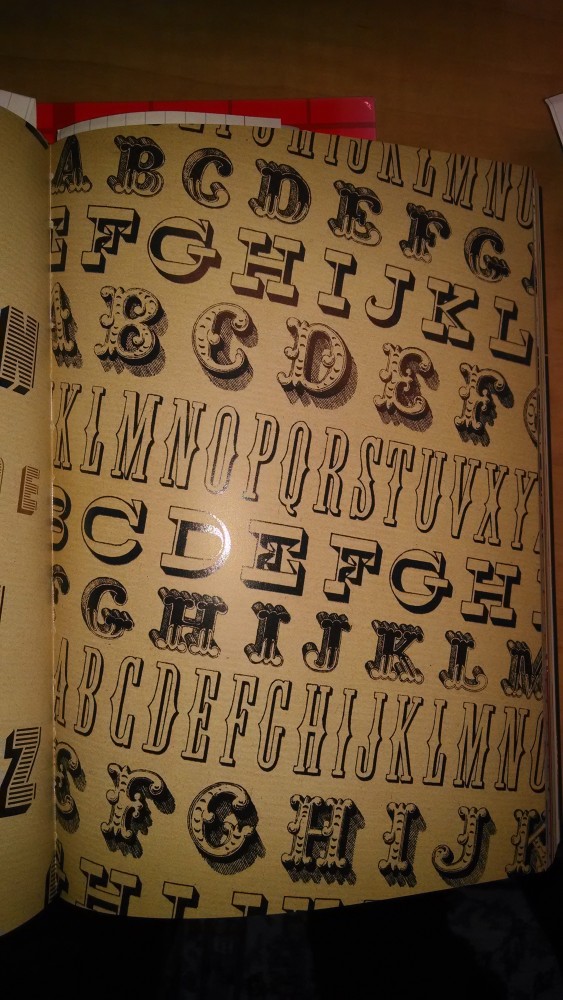 H
E
Z
HIJKLMN
ABCDEFG
EFGHIJKL
ABCDEF
KLMNOPQRSTUVXY
BCDEFGH
FGHIJKLM
ABCDEFGHIJKLMNO
EFGHIJK
HI